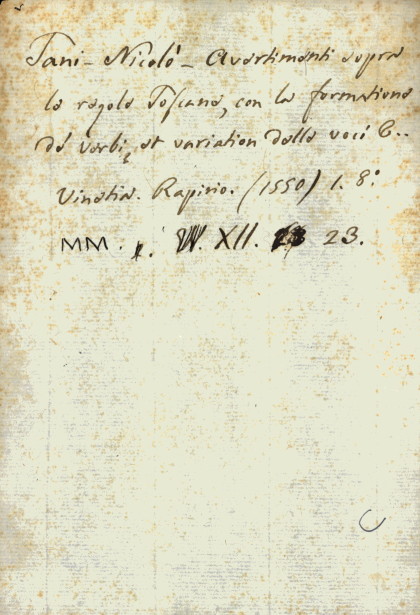 Tani - Nicoló - Avertimenti sopra
le regole Toscane, con la formatione
dé verbi, et variation delle voci &..
Vinetia. Rapirio. (1550) 1. 8.°
MM. W. XII. 23.